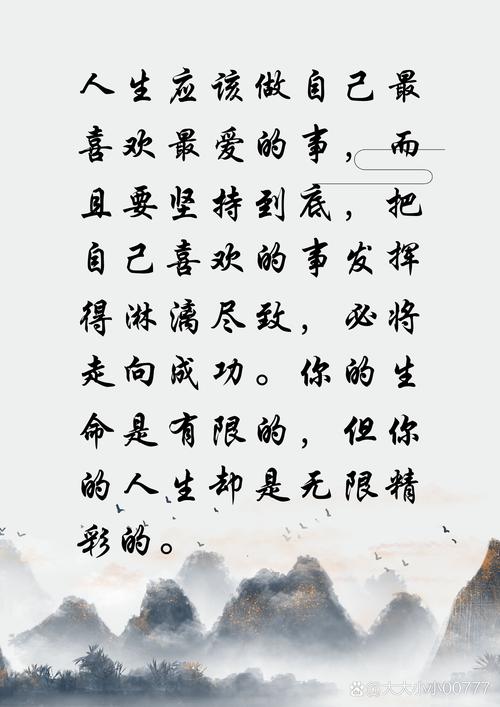 人生应该做自己最
喜欢最爱的事，而
且要坚持到底，把
自己喜欢的事发挥
得淋漓尽致，必将
走向成功。你的生
命是有限的，但你
的人生却是无限精
彩的。
大大小小00777